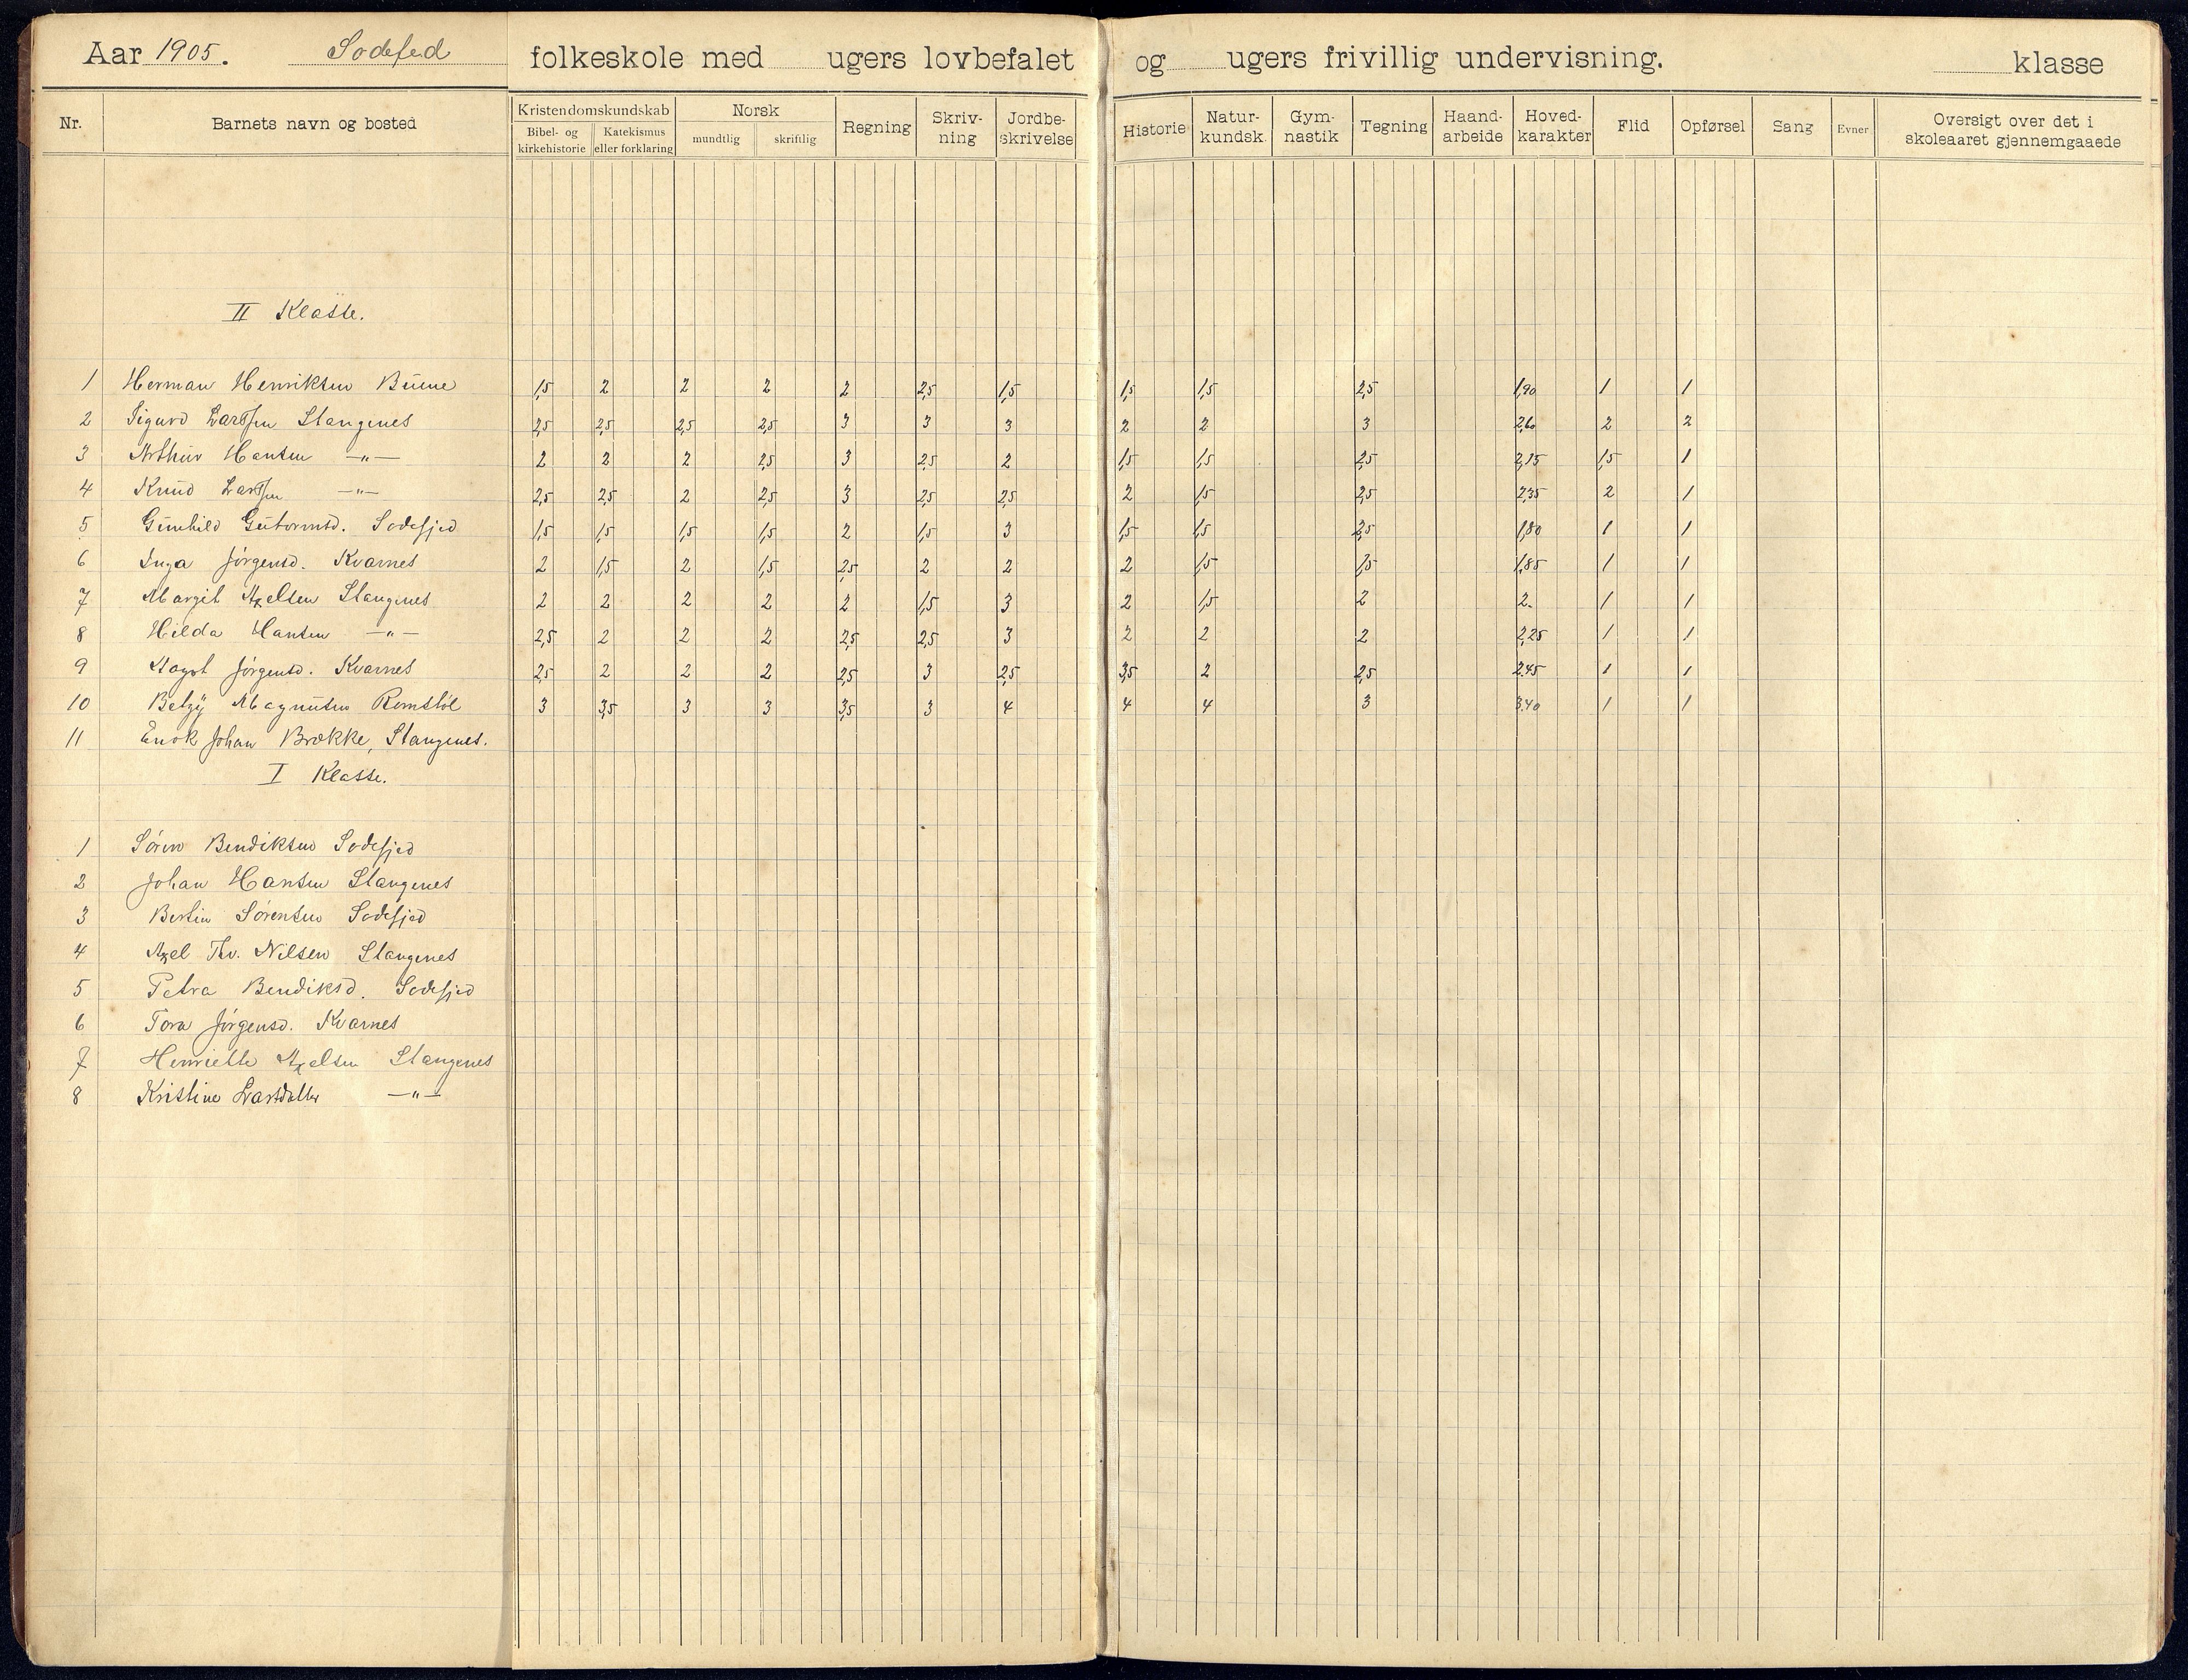 Aar 1905. Sodefed folkeskole med ugers lovbefalet og ugers frivillig undervisning. klasse
Nr. Barnets navn og bosted Kristendomskundskab Bibel- og kirkehistorie Katekismus eller forklaring Norsk mundtlig skriftlig Regning Skriv-ning Jordbe-skrivelse Historie Natur-kundsk. Gym-nastik Tegning Haand-arbeide Hoved-karakter Flid Opførsel Sang Evner Oversigt over det i skoleaaret gjennemgaaede
II Klasse.
1 Herman Henriksen Buene 1,5 2 2 2 2 2,5 1,5 1,5 1,5 2,5 1,90 1 1
2 Sigurd Larssen Stangenes 2,5 2,5 2,5 2,5 3 3 3 2 2 3 2,60 2 2
3 Arthur Hansen —"— 2 2 2 2,5 3 2,5 2 1,5 1,5 2,5 2,15 1,5 1
4 Knud Larssen —"— 2,5 2,5 2 2,5 3 2,5 2,5 2 1,5 2,5 2,35 2 1
5 Gunhild Gutormsd. Sodefjed 1,5 1,5 1,5 1,5 2 1,5 3 1,5 1,5 2,5 1,80 1 1
6 Inga Jørgensd. Kvarnes 2 1,5 2 1,5 2,5 2 2 2 1,5 1,5 1,85 1 1
7 Margit Axelsen Stangenes 2 2 2 2 2 1,5 3 2 1,5 2 2. 1 1
8 Hilda Hansen —"— 2,5 2 2 2 2,5 2,5 3 2 2 2 2,25 1 1
9 Jørgensd. Kvarnes 2,5 2 2 2 2,5 3 2,5 3,5 2 2,5 2.45 1 1
10 Betzy Magnusen Romstøl 3 3,5 3 3 3,5 3 4 4 4 3 3.40 1 1
11 Enok Johan Brække, Stangenes.
I Klasse.
1 Søren Bendiksen Sodefjed
2 Johan Hansen Stangenes
3 Bertin Sørensen Sodefjed
4 Axel Th. Nilsen Stangenes
5 Petra Bendiksd. Sodefjed
6 Tora Jørgensd. Kvarnes
7 Henriette Axelsen Stangenes
8 Kristine Larsdatter —"—